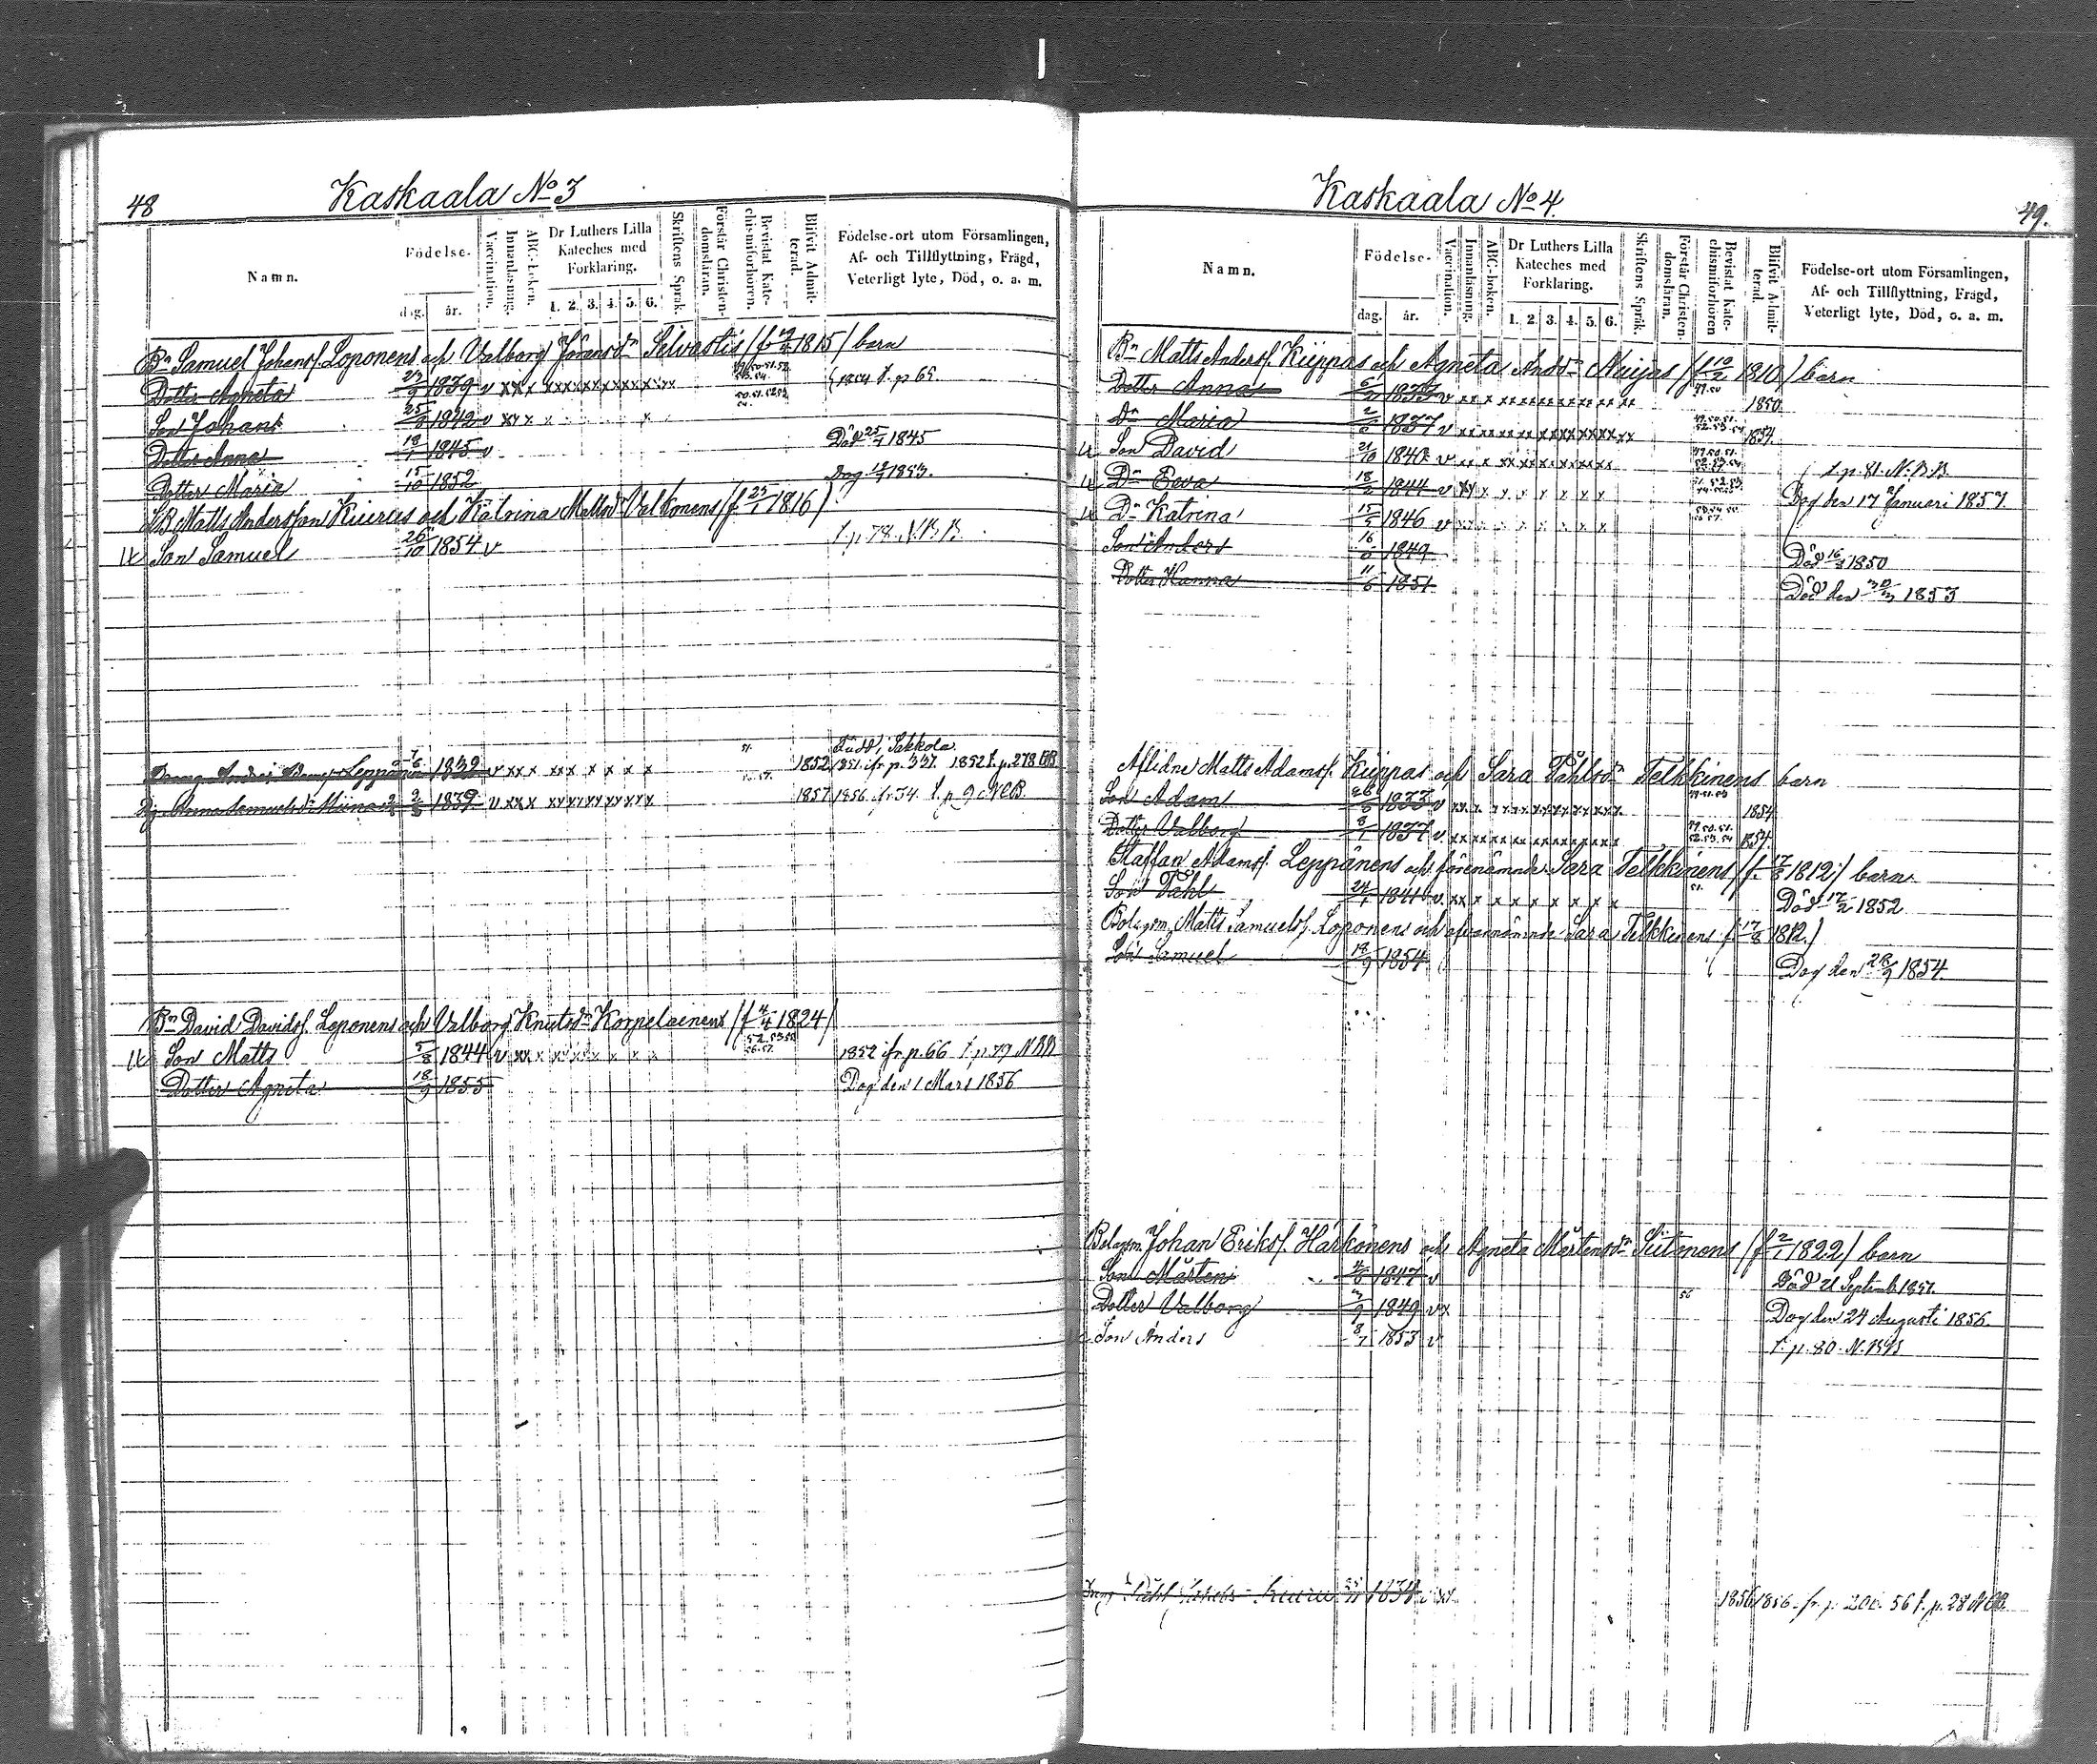 48
Kaskaala No 3
Namn.
Födelse-
dag.
år.
Vaccination.
Innanläsning.
ABC-boken.
Dr Luthers Lilla
Kateches med
Förklaring.
1. 2. 3. 4. 5. 6.
Skriftens Språk.
Förstår Christen-
domsläran.
Bevistat Kate-
chismiförhören.
Blifvit Admit-
terad.
Födelse-ort utom Församlingen,
Af- och Tillflyttning, Frägd,
Veterligt lyte, Död, o. a. m.
Bn Samuel Johansf. Loponens och Valborg Göransdr Silvastis /f. 1815/ barn
Dotter Agneta 1839 v xx x xxxxxxxxxxx 1854 t. p 65.
Son Johan 25 1842 v xx x x x
Dotter Anna 18/7 1845 v Död 25/7 1845
Dotter Maria 15/10 1852 Dog 1853.
Matts Andersson Kiurus och Katrina Mattsdr Valkonens /f. 25/1 1816/
Son Samuel 26/10 1854 v t. p. 78. N.B.B.
Leppänen 7/6 1832 v xx x xx x x x x 51. 1852 1851 ifr p. 331. 1852 t. p. 278 BB
född i Sakkola
Pig. Anna Samuelsdr 1839 v xx x xxxxxxxxx 1857 1856 fr 34 t. p 9 NCB.
Bn David Davidsf. Loponens och Valborg Knutsdr Korpelainens /f 4/4 1824/
Son Matts 5/8 1844 v xx x x x x x x x 52. 53 55 56. 57. 1852 ifr p. 66 t. p 79 NBB
Dotter Agneta 18/9 1855 Dog den 1 Mars 1856
Kaskaala No 4.
49.
Namn.
Födelse-
dag.
år.
Vaccination.
Innanläsning.
ABC-boken.
Dr Luthers Lilla
Kateches med
Förklaring.
1. 2. 3. 4. 5. 6.
Skriftens Språk.
Förstår Christen-
domsläran.
Bevistat Kate-
chismiförhören
Blifvit Admit-
terad.
Födelse-ort utom Församlingen,
Af- och Tillflyttning, Frägd,
Veterligt lyte, Död, o. a. m.
Bn Matts Andersf. Kiippas och Agneta Andsdr Nuijas /f 10/2 1810/ barn
Dotter Anna v x x x xxxxxxxxxxx 49. 50 1850.
Dr Maria 1837 v xxxxxxxxxxxxxx 49. 50. 51. 52. 53. 54 1854.
Son David 21/10 1840 v x x x xxxxxxxxx t. p. 81. N.B.B.
Dr Eeva 18 1844 v xx x x x x x x x Dog den 17 Januari 1857.
Dr Katrina 15/5 1846 v
Son Anders 16 1849 Död 16 1850
Dotter Hanna 11/6 1851 Död den 30 1853
Aflidne Matts Adamsf. Kiippas och Sara Påhlsdr Telkkinens barn
Son Adam 1833 v xx x xxxxxxxxxxx 49. 51. 53 1854
Dotter Valborg 8/1 1837 v xxxxxxxxxxxx 49. 50. 51. 52. 53. 54 1854.
Staffan Adamsf. Leppänens och förenämnde Sara Telkkinens /f. 17/8 1812/ barn.
Son Påhl 1841 v xx x x x x x x x x 51. Död 17/2 1852
Bolagsm. Matts Samuelsf. Loponens och Sara Telkkinens f. 17/8 1812.)
Son Samuel 18/9 1854 Dog den 28/9 1854
Bolagsm. Johan Eriksf. Härkönens och Agneta Mårtensdr Siitonens /f 2/1 1822/ barn
Son Mårten 1847 v Död 21 Septemb. 1857.
Dotter Valborg 1849 v x 56 Dog den 24 Augusti 1856.
Son Anders 8/7 1853 v t. p. 80. N.BB
Påhl 1834 v xx 1856 1856. fr. p. 200. 56 t. p. 28 NCB.